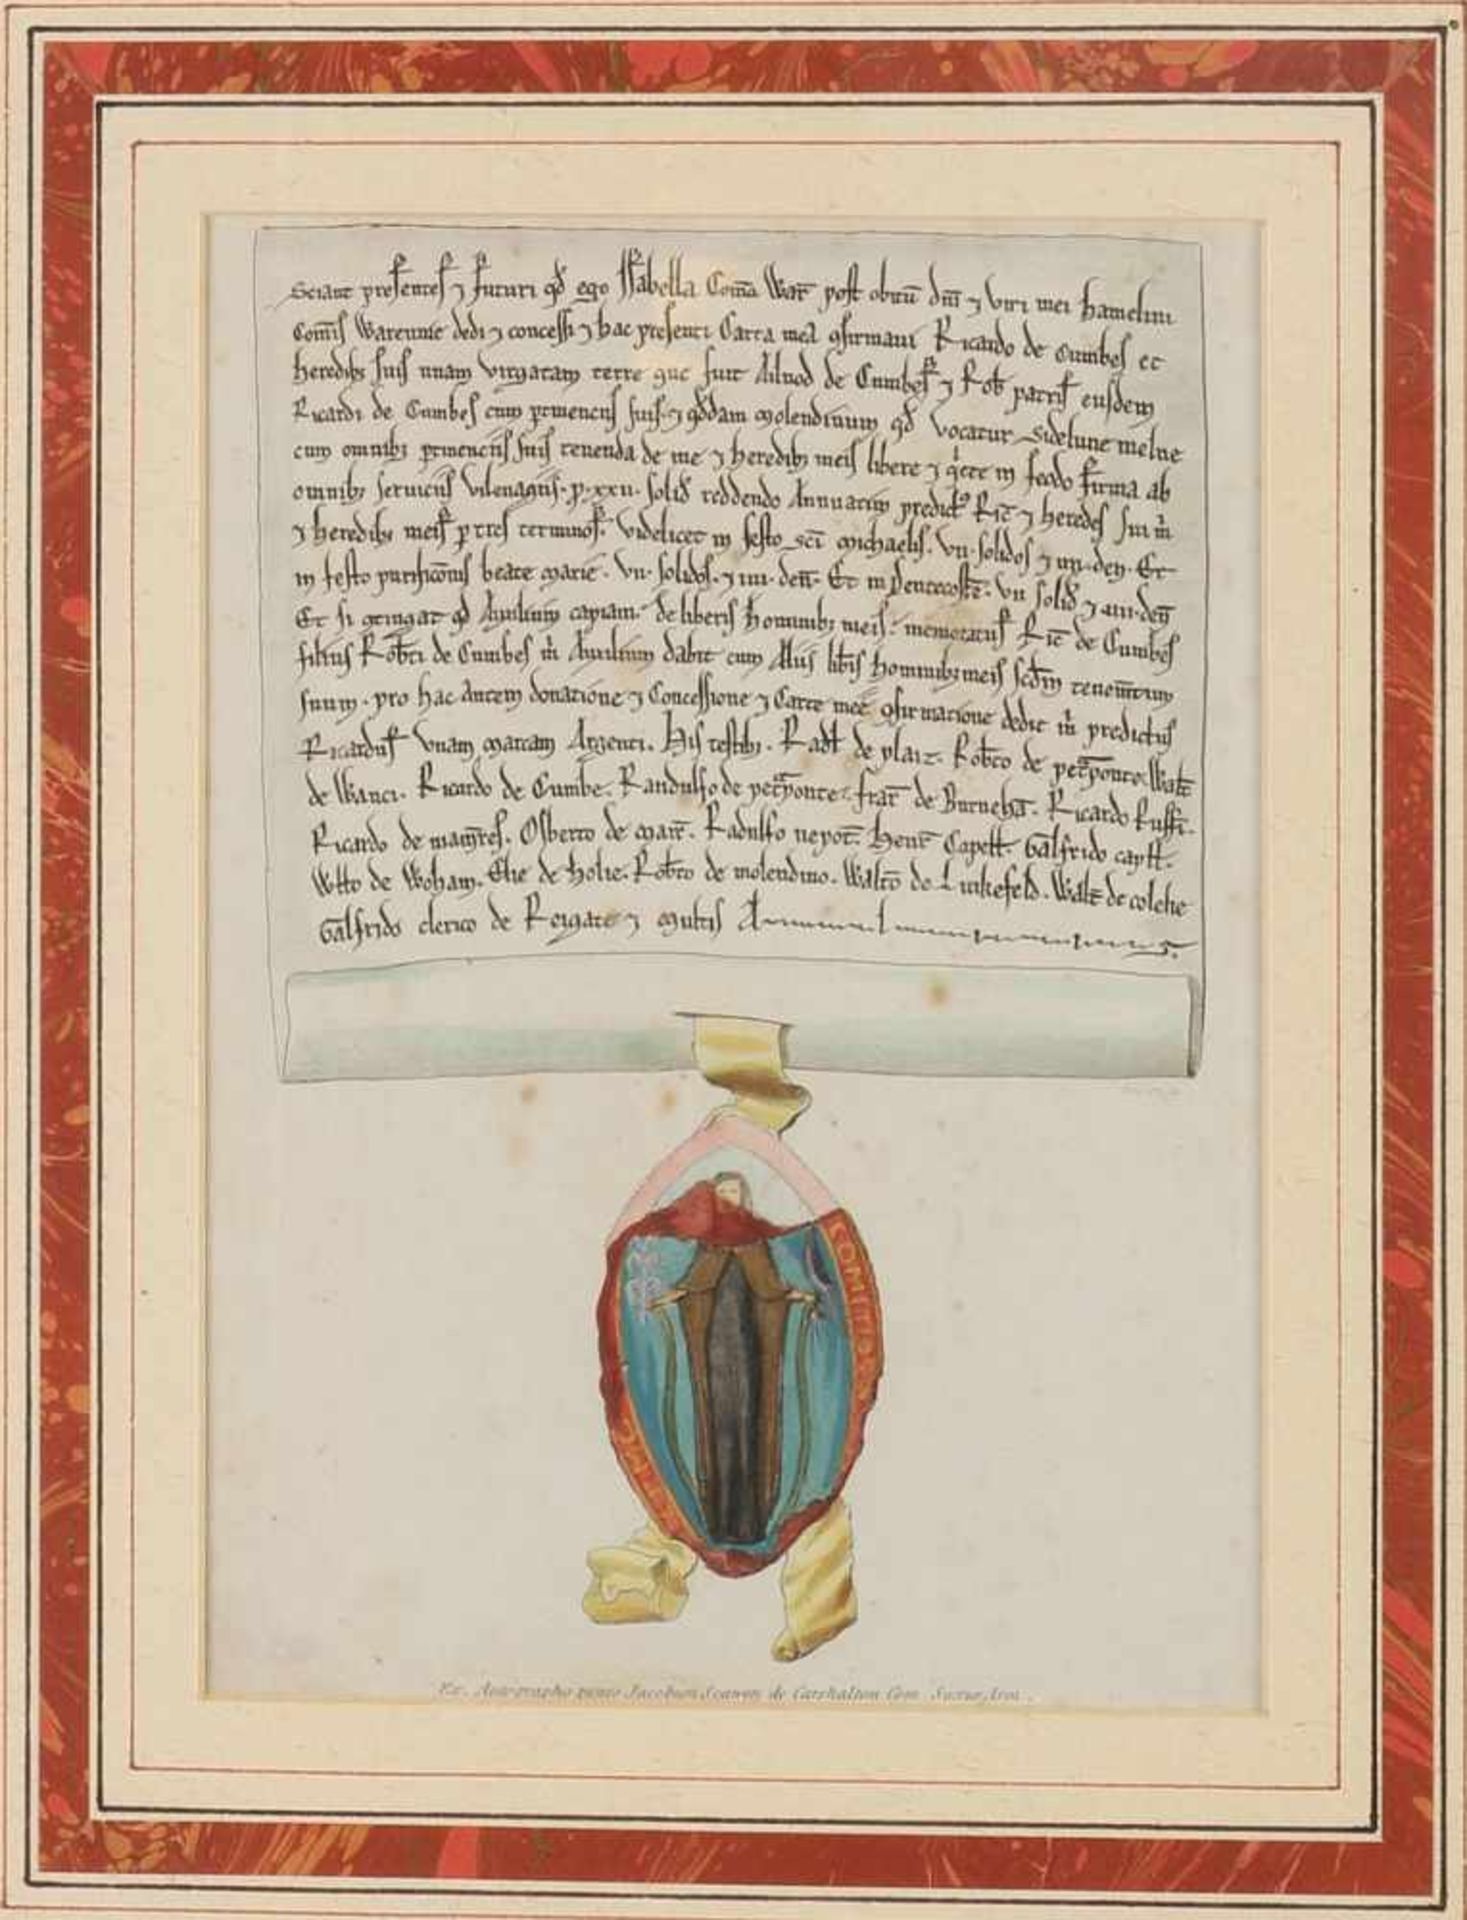 Sciant presentes ⁊ futuri qđ ego Isabella Comā War̄ post obitū dnī ⁊ viri mei hamelini
Comīs Warennie dedi ⁊ concessi ⁊ hac presenti Carta mea ꝯfirmaui Ricardo de Cumbes et
heredibȝ suis unam virgatam terre que fuit Ailnod de Cumbes ⁊ Rob̄ patris eiusdem
Ricardi de Cumbes cum ꝑtinenciis suis ⁊ qđdam molendinum qđ vocatur Sidelune melne
cum omnibȝ ꝑtinenciis suis tenenda de me ⁊ heredibȝ meis libere ⁊ qͥete in feodo firma ab
omnibȝ seruiciis vilenagiis. ꝑ. xxii. solid̄ reddendo Annuatim predictꝰ Ric̄ ⁊ heredes sui m̄
⁊ heredibȝ meis ꝑ tres terminos. videlicet in festo sc̄i michaelis. vii. solidos ⁊ iiii. den. Et
in festo purificōnis beate marie. vii. solidos. ⁊ iiii. den̄. Et in Pentecoste. vii solid̄ ⁊ iiii. den̄
Et si ꝯtingat qđ Auxilium capiam de liberis hominibȝ meis. memoratus Ric̄ de Cumbes
filius Rob̄ti de Cumbes m̄ Auxilium dabit cum Aliis lib̄is hominibȝ meis scđm tenem̄tum
suum. pro hac Autem donatione ⁊ Concessione ⁊ Carte mee ꝯfirmatione dedit m̄ predictus
Ricardus vnam marcam Argenti. His testibȝ. Rad̄ de plaiz. Rob̄to de petͣponte. Walt̄
de Wanci. Ricardo de Cumbe. Randulfo de petͣponte. frat̄ de Burnehā. Ricardo Ruff.
Ricardo de mam̄res. Osberto de mare. Radulfo nepot̄. Henr̄ Capell̄. Galfrido capll̄.
Witto de Woham. Elie de holie. Rob̄to de molendino. Waltō de Linkefeld. Walt̄ de colche
Galfrido clerico de Reigate ⁊ multis A
COMITIS
Ex. Autographo penes Jacobum Scawen de Carshalton Com. Surriæ, Arm.